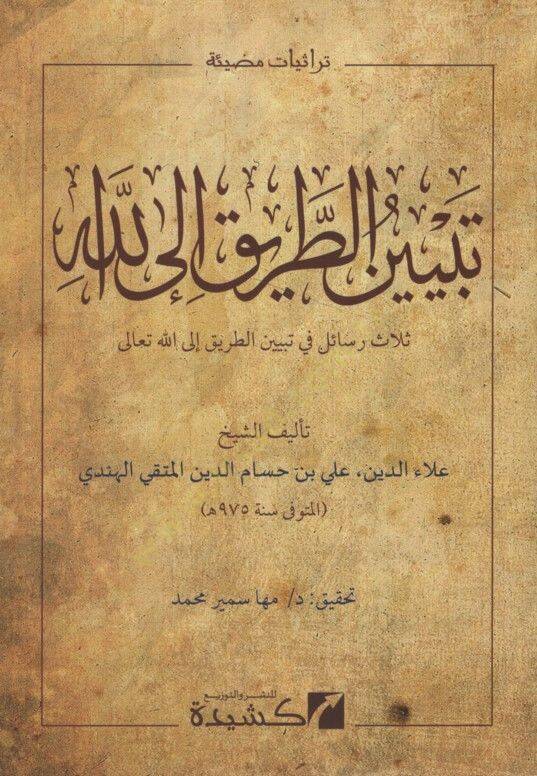 تراثيات مضيئة
تَبْيِيْنُ الطَّرِيقِ إِلَى اللَّهِ
ثلاث رسائل في تبيين الطريق إلى الله تعالى
تأليف الشيخ
علاء الدين، علي بن حسام الدين المتقي الهندي
(المتوفى سنة ٩٧٥هـ)
تحقيق: د/ مها سمير محمد
للنشر والتوزيع
كشيدة